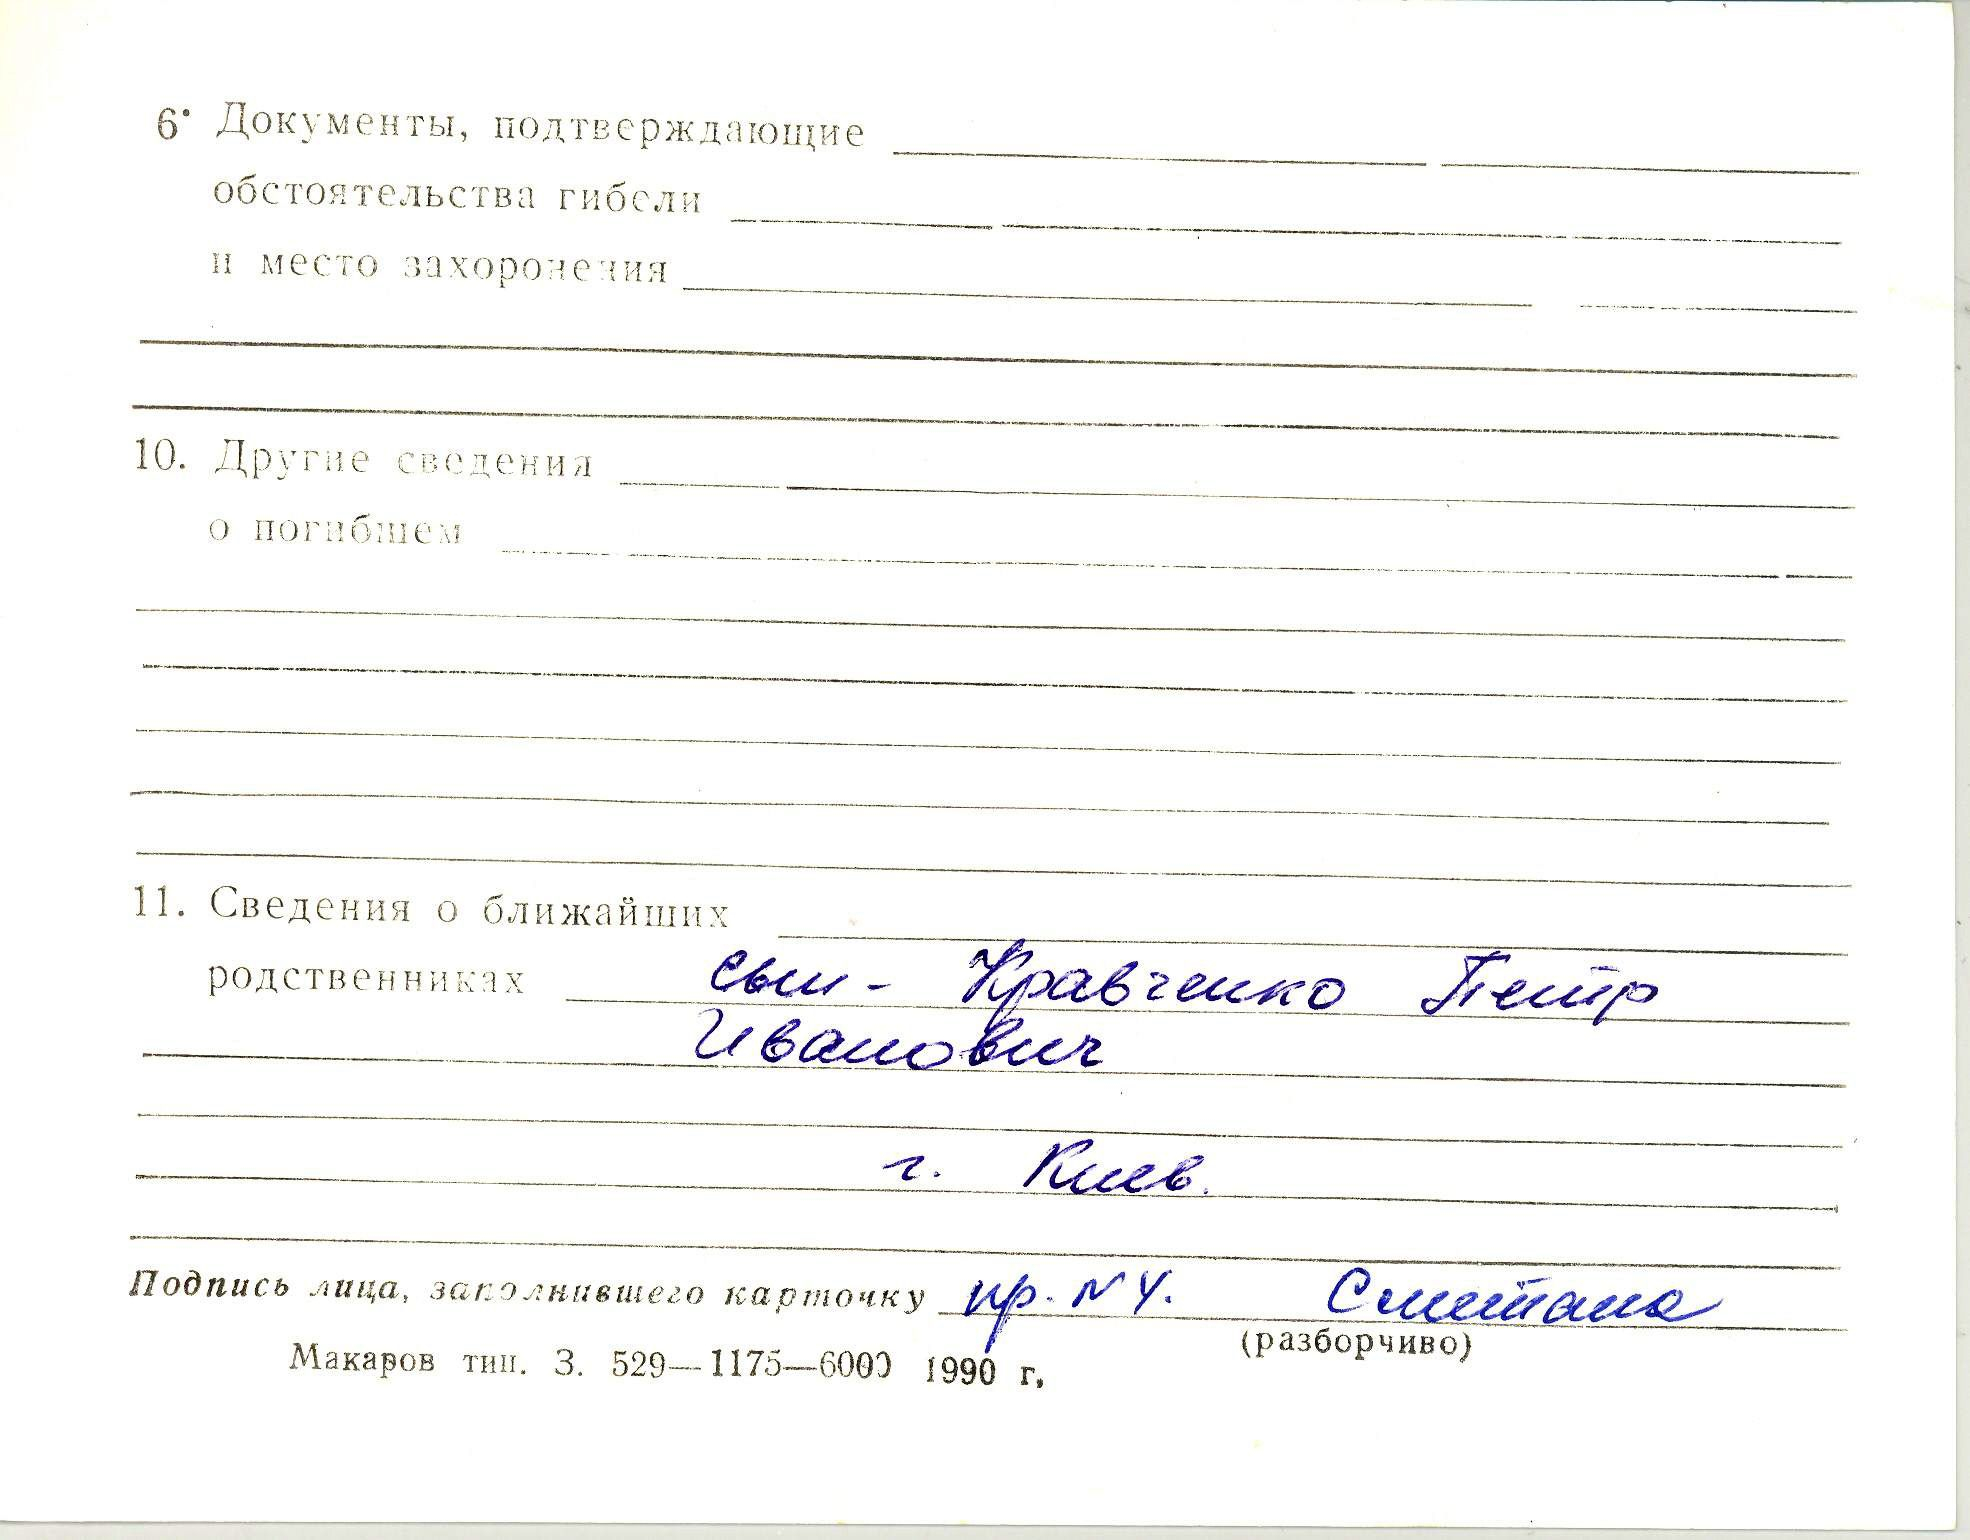 6. Документы, подтверждающие
обстоятельства гибели
и место захоронения
10. Другие сведения
о погибшем
11. Сведения о ближайших
родственниках сын - Кравченко Петр
Иванович
г. Киев.
Подпись лица, заполнившего карточку пр. N 4. Сметана
(разборчиво)
Макаров тип. З. 529—1175—6000 1990 г.